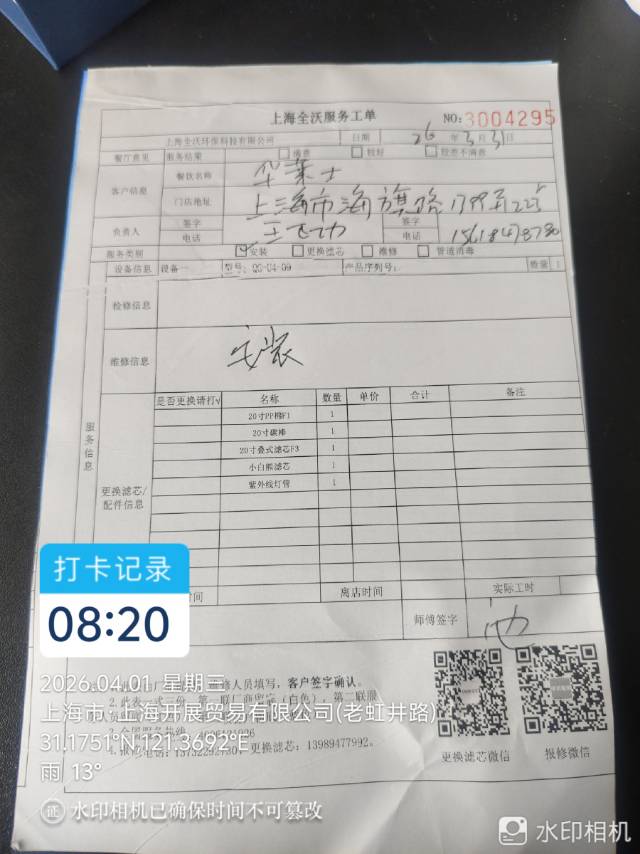 上海全沃服务工单
NO:3004295
上海全沃环保科技有限公司 日期 26 年 3 月 31 日
餐厅意见 服务结果 满意 较好 较差不满意
客户信息 餐饮名称 华莱士
门店地址 上海市海旗路
负责人 签字 签字
电话 电话
服务类别 安装 更换滤芯 维修 管道消毒
设备信息 设备一 型号: QG-U4-09 产品序列号: 数量 1
检修信息
维修信息 安装
服务信息
更换滤芯/配件信息
是否更换请打√ 名称 数量 单价 合计 备注
20寸PP棉F1 1
20寸碳棒 1
20寸叠式滤芯F3 1
小白熊滤芯 1
紫外线灯管 1
时间 离店时间 实际工时
师傅签字
打卡记录
08:20
人员填写，客户签字确认。
2026.04.01 星期三
上海市·上海井展贸易有限公司(老虹井路)
31.1751°N,121.3692°E
雨 13°
更换滤芯: 13989477992.
更换滤芯微信 报修微信
证 水印相机已确保时间不可篡改
水印相机